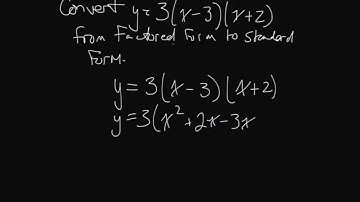 Convert y=3(x-3)(x+2)
from factored form to standard
form.
y=3(x-3)(x+2)
y=3(x²+2x-3x